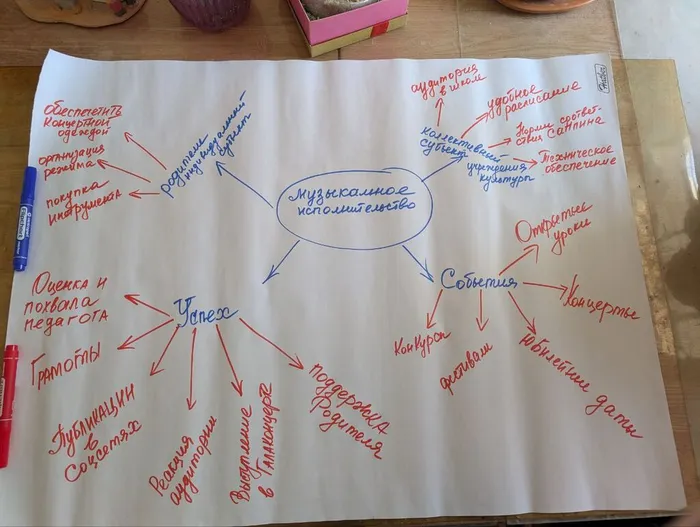 музыкальное
исполнительство
родители
индивидуальный
субъект
обеспечить
концертной
одеждой
организация
режима
покупка
инструмента
коллективный
субъект
учреждения
культуры
аудитория
в школ
удобное
расписание
Нормы соответ-
ствия СанПина
Техническое
обеспечение
Успех
Оценка и
похвала
педагога
Грамоты
Публикации
в
соцсетях
Реакция
аудитории
Выступление
в Галаконцерте
поддержка
Родителя
События
Открытые
уроки
Концерты
Юбилейные даты
фестивали
Конкурсы